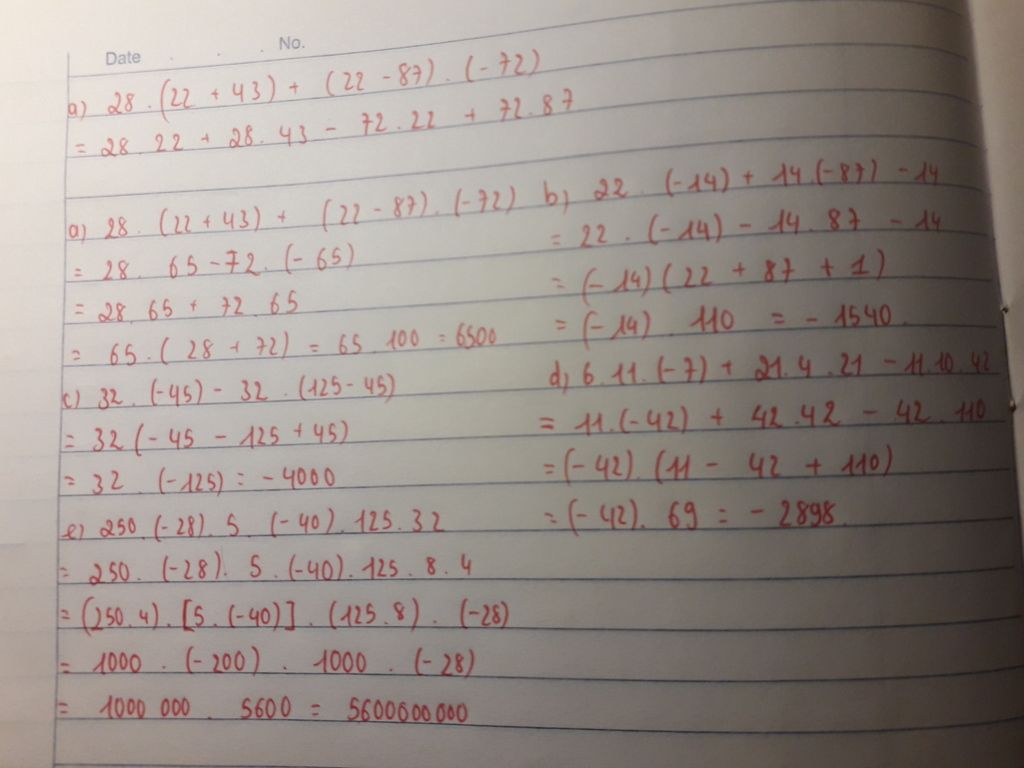 Date . . . No.
a) 28 . (22 + 43) + (22 - 87) . (-72)
= 28 22 + 28. 43 - 72. 22 + 72. 87
a) 28. (22 + 43) + (22 - 87). (-72)
= 28. 65 - 72. (-65)
= 28. 65 + 72 65
= 65 . ( 28 + 72) = 65 100 = 6500
c) 32 . (-45) - 32 . (125 - 45)
= 32 (-45 - 125 + 45)
= 32 (-125) = -4000
e) 250 . (-28). 5 (-40) . 125. 32
= 250. (-28). 5 . (-40). 125 . 8. 4
= (250. 4) . [5 . (-40)] . (125. 8) . (-28)
= 1000 . (-200) . 1000 . (-28)
= 1000 000 . 5600 = 5600000000
b) 22 . (-14) + 14. (-87) - 14
= 22 . (-14) - 14. 87 - 14
= (-14) (22 + 87 + 1)
= (-14) 110 = - 1540.
d) 6. 11. (-7) + 21. 4 . 21 - 11. 10. 42
= 11. (-42) + 42. 42 - 42. 110
= (-42) . (11 - 42 + 110)
= (-42). 69 = - 2898.